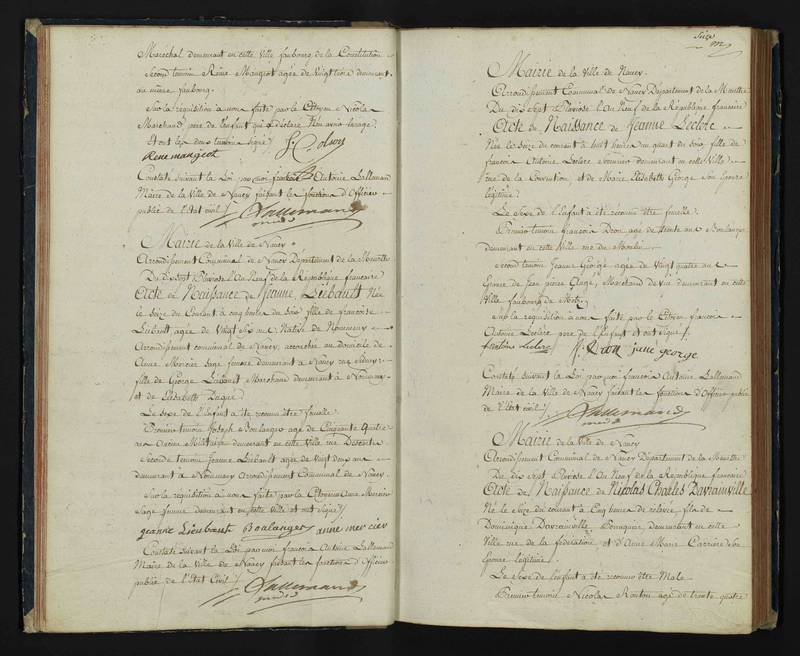 Maréchal demeurant en cette Ville faubourg de la Constitution
second temoin Reine Mangeot agée de Vingt trois demeurant
au même faubourg.
Sur la requisition à nous faite par le Citoyen Nicolas
Marchand, pere de l'enfant qui a déclaré
Et ont les deux temoins signé
Rene mangeot
Constaté suivant la Loi par moi françois Antoine Lallemand
Maire de la Ville de Nancy faisant les fonctions d'Officier
public de l'Etat civil
Lallemand
Mairie de la Ville de Nancy
Arrondissement Communal de Nancy Departement de la Meurthe
Du dix sept Pluviose l'An Neuf de la République francaise
Acte de Naissance de Jeanne Liébault Née
le seize du Courant à cinq heures du Soir fille de francoise
Liébault, agée de Vingt Six ans Native de Nomeny
Arrondissement communal de Nancy, accouchée au domicile de
Anne Mercier Sage femme demeurant à Nancy rue
fille de George Liébault Marchand demeurant à Nomeny
et de Elisabeth
Le Sexe de l'Enfant a été reconnu être femelle
Premier temoin Joseph Boulanger age de Cinquante Quatre
ans Ancien Militaire demeurant en cette Ville rue
Seconde temoin Jeanne Liébault agée de Vingt deux ans
demeurant à Nomeny Arrondissement Communal de Nancy.
Sur la requisition à nous faite par la Citoyenne Anne Mercier
Sage femme demeurant en cette Ville et ont Signé
jeanne Liebault Boulanger anne mercier
Constaté suivant la Loi par moi francois Antoine Lallemand
Maire de la Ville de Nancy faisant les fonctions d'Officier
public de l'Etat Civil
Lallemand
Seize
Mairie de la Ville de Nancy.
Arrondissement Communal de Nancy Departement de la Meurthe
Du dix sept Pluviose l'An Neuf de la République francaise
Acte de Naissance de Jeanne Leclerc
Née le Seize du courant à huit heures un quart du Soir, fille de
francois Antoine Leclerc demeurant en cette Ville
rue de la Convention, et de Marie Elisabeth George son Epouse
legitime.
Le Sexe de l'Enfant a été reconnu être femelle.
Premier temoin francois Dron age de trente ans Boulanger
demeurant en cette Ville rue de
Second temoin Jeanne George agée de Vingt quatre ans
Epouse de Jean pierre Marchand de vin demeurant en cette
Ville faubourg de Metz.
Sur la requisition à nous faite par le Citoyen francois
Antoine Leclerc pere de l'Enfant et ont signé
Leclerc f. Dron jane george
Constaté suivant la Loi par moi francois Antoine Lallemand
Maire de la Ville de Nancy faisant les fonctions d'Officier public
de l'Etat civil
Lallemand
Mairie de la Ville de Nancy
Arrondissement Communal de Nancy Departement de la Meurthe
Du dix Sept Pluviose l'An Neuf de la République francaise
Acte de Naissance de Nicolas Charles Davrainville
Né le Seize du courant à Cinq heures de relevée fils de
Dominique Davrainville, demeurant en cette
Ville rue de la fédération et d'Anne Marie Carriere son
Epouse légitime.
Le Sexe de l'enfant a été reconnu être Male.
Premier temoin Nicolas age de trente quatre